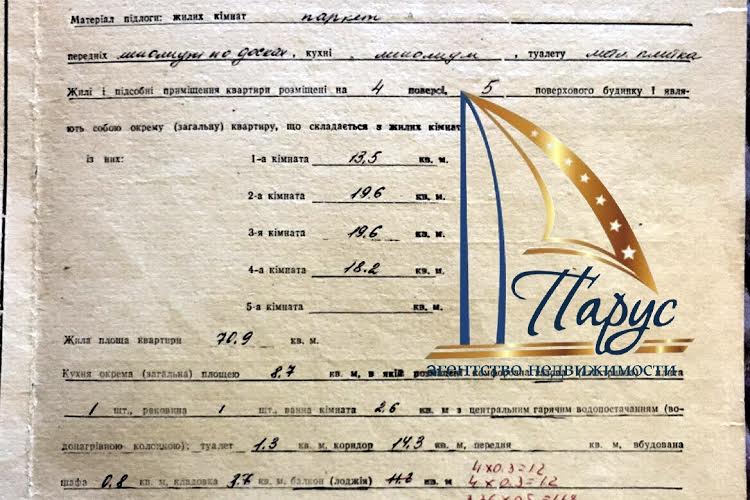 Матеріал підлоги: жилих кімнат паркет
передніх линолиум по доскам, кухні линолиум, туалету метл. плитка
Жилі і підсобні приміщення квартири розміщені на 4 поверсі, 5 поверхового будинку і явля-
ють собою окрему (загальну) квартиру, що складається з жилих кімнат
із них: 1-а кімната 13,5 кв. м.
2-а кімната 19.6 кв. м.
3-я кімната 19.6 кв. м.
4-а кімната 18.2 кв. м.
5-а кімната кв. м.
Парус
агентство недвижимости
Жила площа квартири 70,9 кв. м.
Кухня окрема (загальна) площею 8,7 кв. м, в якій
1 шт., раковина 1 шт., ванна кімната 2,6 кв. м з центральним гарячим водопостачанням (во-
донагрівною колонкою); туалет 1.3 кв. м, коридор 14,3 кв. м, передня кв. м, вбудована
шафа 0,8 кв. м, кладовка 3.7 кв. м, балкон (лоджія) кв. м
4x0.3=12
4x0.3=12